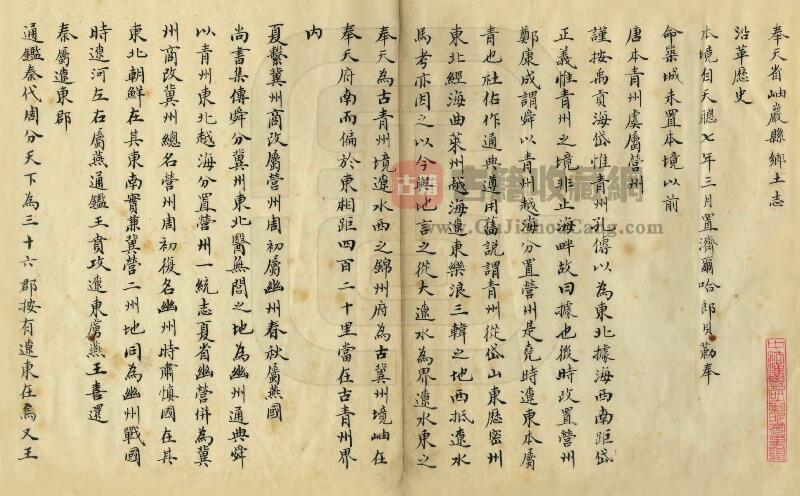 奉天省岫巖縣鄉土志
沿革歷史
本境自天聰七年三月置濟爾哈郎貝勒奉
命築城未置本境以前
唐本青州虞屬營州
謹按禹貢海岱惟青州孔傳以為東北據海西南距岱
正義惟青州之境非止海畔故曰據也後時改置營州
鄭康成謂舜以青州越海分置營州是堯時遼東本屬
青也杜佑作通典遵用舊說謂青州從岱山東歷密州
東北經海曲萊州越海遼東樂浪三韓之地西抵遼水
馬考亦因之以今輿地言之從大遼水為界遼水東之
奉天為古青州境遼水西之錦州府為古冀州境岫在
奉天府南而偏於東相距四百二十里當在古青州界
內
夏繫冀州商改屬營州周初屬幽州春秋屬燕國
尚書集傳舜分冀州東北醫無閭之地為幽州通典舜
以青州東北越海分置營州一統志夏省幽營併為冀
州商改冀州總名營州周初復名幽州時肅慎國在其
東北朝鮮在其東南實兼冀營二州地同為幽州戰國
時遼河左右屬燕通鑑王賁攻遼東虜燕王喜還
秦屬遼東郡
通鑑秦代周分天下為三十六郡按有遼東在焉又王
古籍
古籍收藏網
www.GuJiShouCang.com